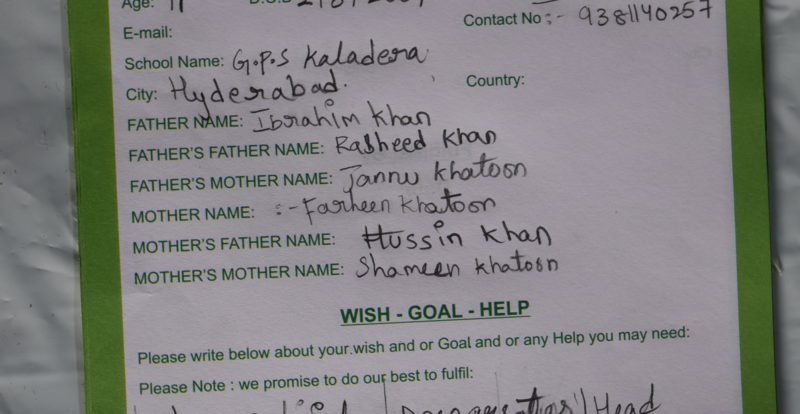 Age: 11
Contact No :- 9381140257
E-mail:
School Name: G.P.S Kaladera
City: Hyderabad. Country:
FATHER NAME: Ibrahim khan
FATHER'S FATHER NAME: Rasheed khan
FATHER'S MOTHER NAME: Jannu khatoon
MOTHER NAME: :- Farheen khatoon
MOTHER'S FATHER NAME: Hussin khan
MOTHER'S MOTHER NAME: Shameen khatoon
WISH - GOAL - HELP
Please write below about your.wish and or Goal and or any Help you may need:
Please Note : we promise to do our best to fulfil:
Head